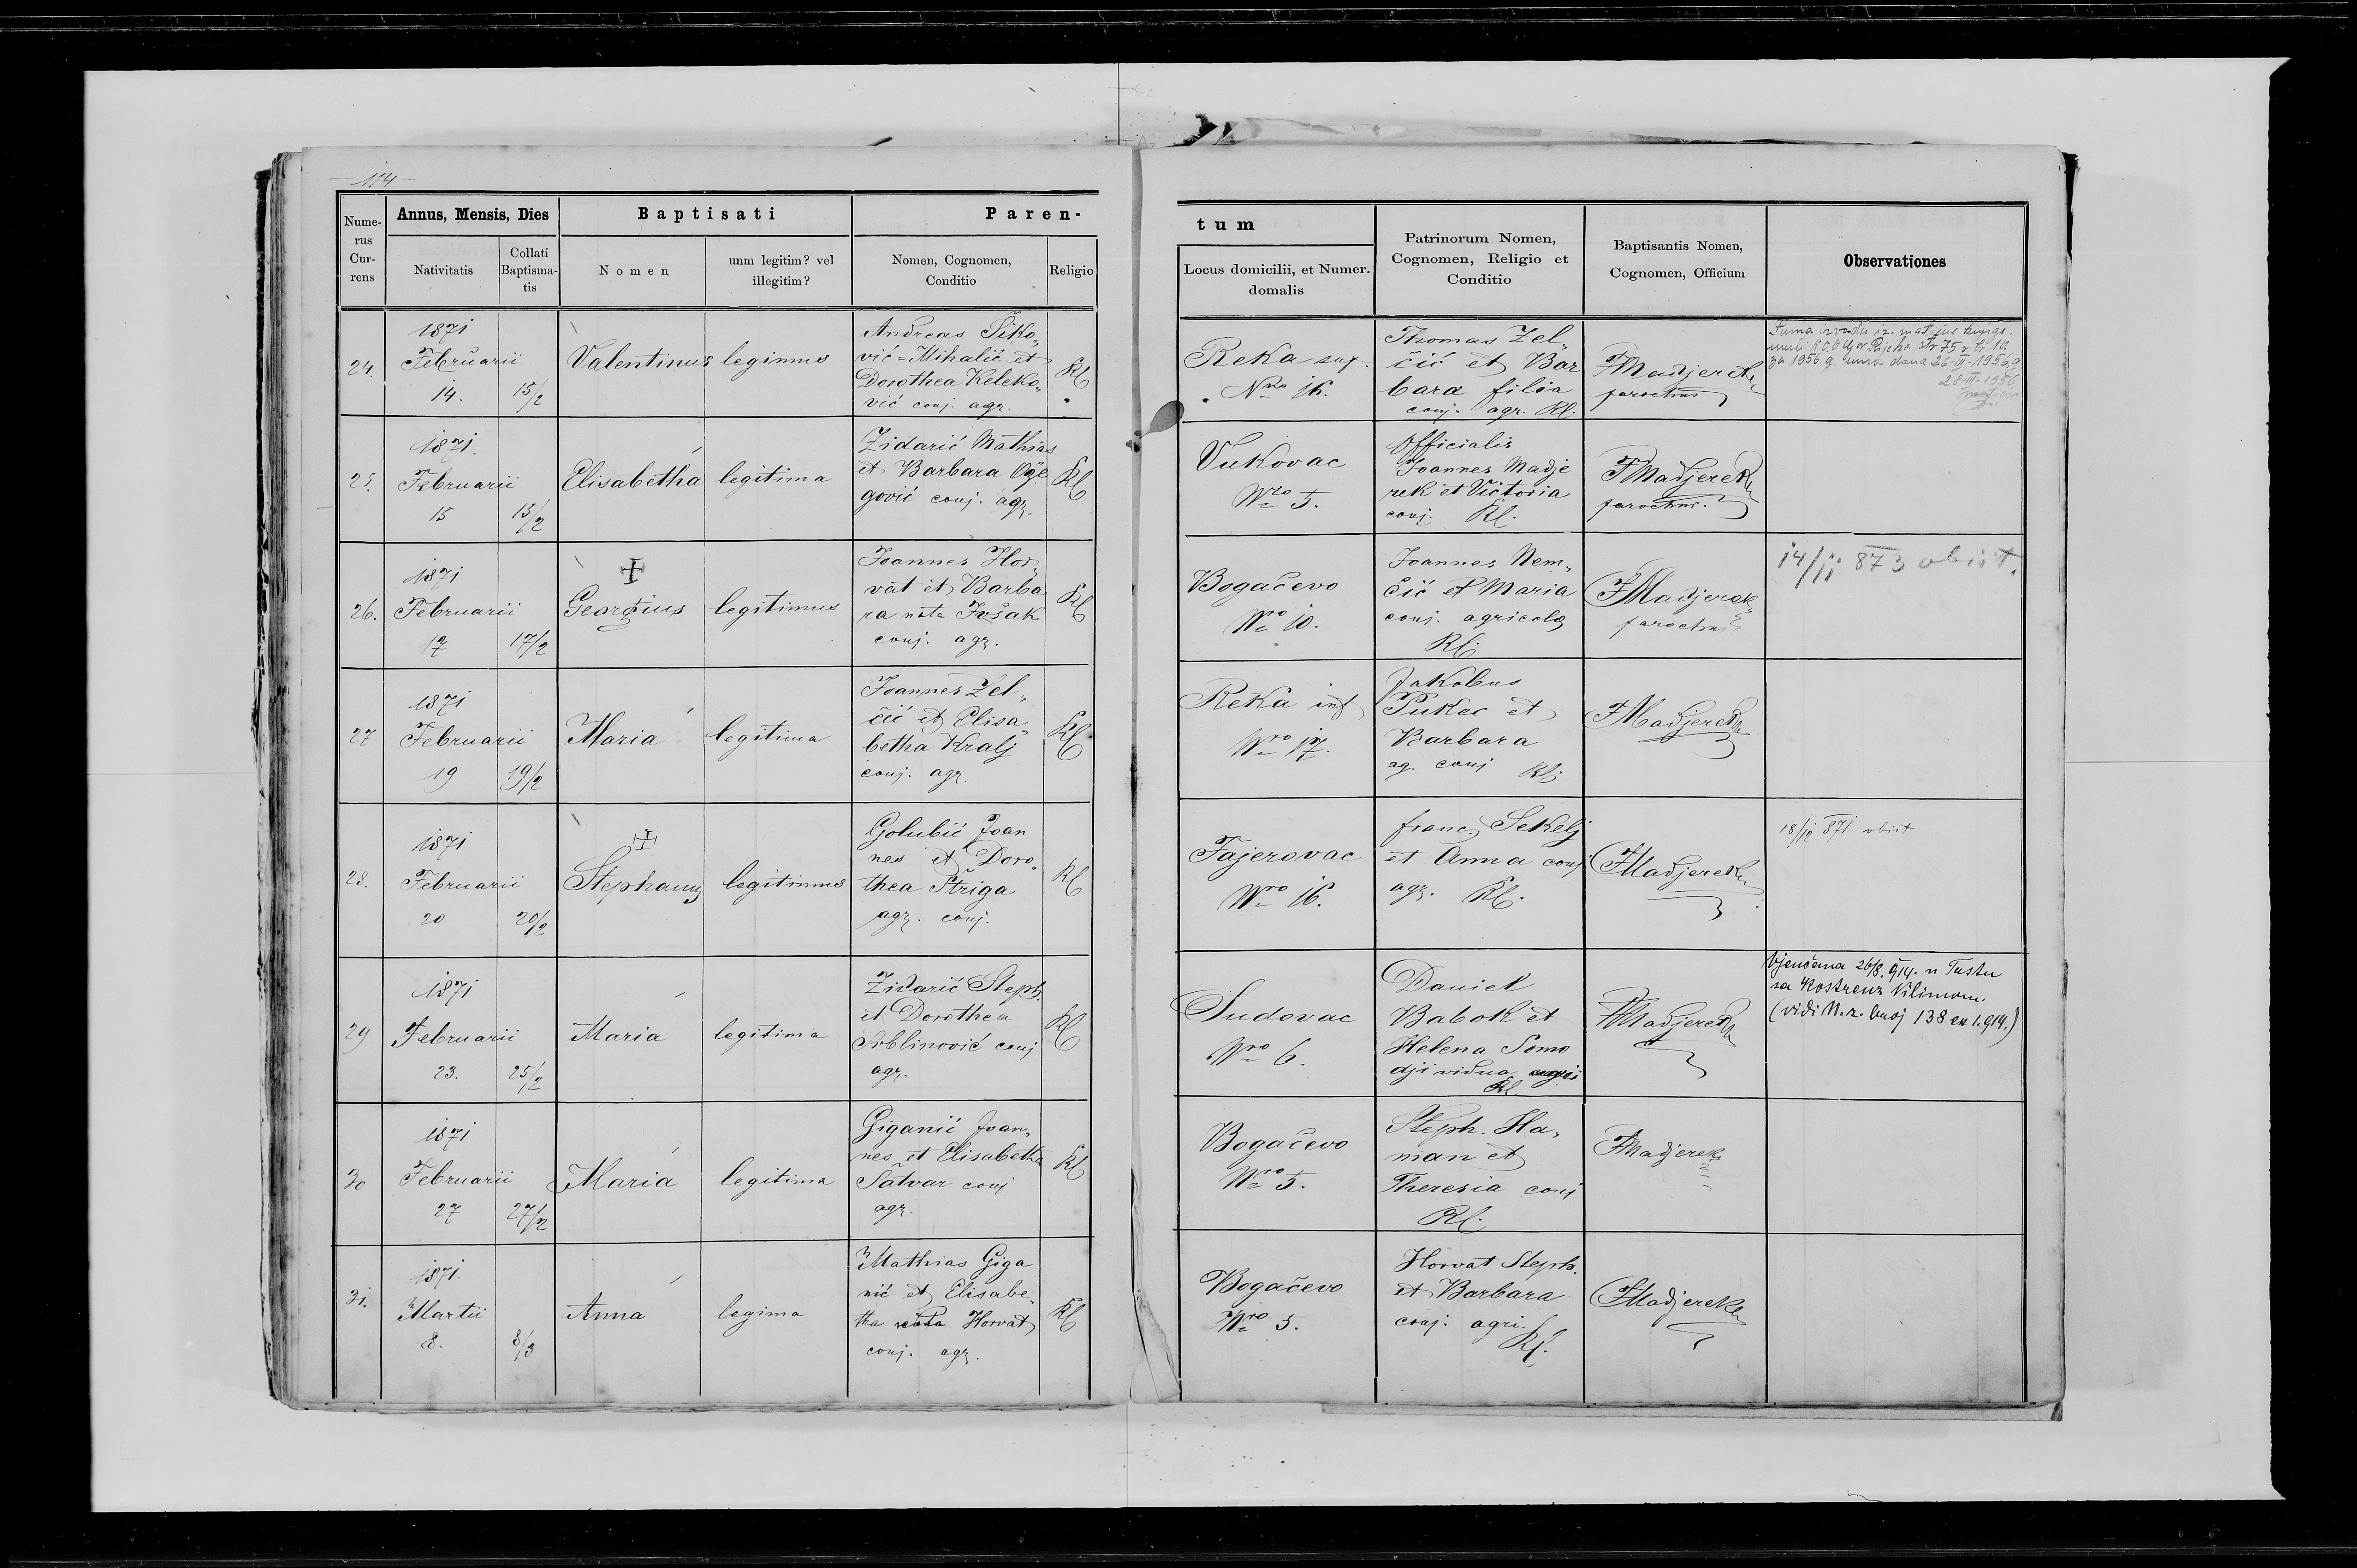 114
Nume-
rus
Cur-
rens
Annus, Mensis, Dies
Nativitatis
Collati
Baptisma-
tis
Baptisati
Nomen
unm legitim? vel
illegitim?
Paren-
Nomen, Cognomen,
Conditio
Religio
tum
Locus domicilii, et Numer.
domalis
Patrinorum Nomen,
Cognomen, Religio et
Conditio
Baptisantis Nomen,
Cognomen, Officium
Observationes
24.
1871
Februarii
14.
15/2
Valentinus
legimus
Andreas Šiko„
vić=Mihalić et
Dorothea Keleko„
vić conj. agr.
Rl
Reka sup.
Nro 16.
Thomas Zel„
čić et Bar
bara filia
conj. agr. Rl.
FMadjerek
parochus
za 1956 g.
28-III-1956
25.
1871.
Februarii
15
15/2
Elisabetha
legitima
Zidarić Mathias
et Barbara Ože
gović conj. agr.
Rl
Vukovac
Nro 5.
Officialis
Joannes Madje
rek et Victoria
conj. Rl.
FMadjerek
parochus.
26.
1871
Februarii
17
17/2
Georgius
legitimus
Joannes Hor„
vat et Barba
ra nata Ivšak
conj. agr.
Rl
Bogačevo
Nro 10.
Joannes Nem„
čić et Maria
conj. agricolæ
Rl.
FMadjerek
parochus
14/11 873 obiit.
27
1871
Februarii
19
19/2
Maria
legitima
Joannes Zel„
čić et Elisa„
betha Kralj
conj. agr.
Rl
Reka inf
Nro 17.
Jakobus
Pukec et
Barbara
ag. conj Rl.
FMadjerek
28.
1871
Februarii
20
20/2
Stephanus
legitimus
Golubić Joan
nes et Doro„
thea Štriga
agr. conj.
Rl
Fajerovac
Nro 16.
franc. Sekelj
et Anna conj
agr. Rl.
FMadjerek
18/12 871 obiit
29
1871
Februarii
23.
25/2
Maria
legitima
Zidarić Steph.
et Dorothea
Srblinović conj
agr.
Rl
Sudovac
Nro 6.
Daniel
Babok et
Helena Somo
dji vidua agri
Rl.
FMadjerek
Vjenčana 26/8. 914. u
za Kostrenz Vilimom.
(vidi M.z. broj 138 ex 1.914.)
30
1871
Februarii
27
27/2
Maria
legitima
Giganić Joan„
nes et Elisabetha
Šatvar conj
agr.
Rl
Bogačevo
Nro 5.
Steph. Ha„
man et
Theresia conj
Rl.
FMadjerek
31.
1871.
Martii
8.
8/3
Anna
legima
Mathias Giga
nić et Elisabe„
tha nata Horvat
conj. agr.
Rl
Bogačevo
Nro 5.
Horvat Steph.
et Barbara
conj. agri.
Rl.
FMadjerek